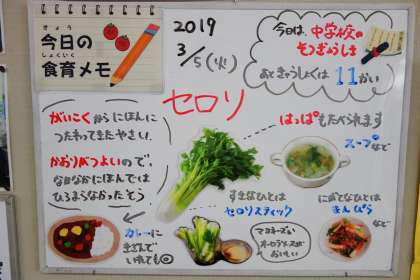 きょう
今日の
しょくいく
食育メモ
2019
3/5(火)
今日は、中学校の
そつぎょうしき
あときゅうしょくは 11かい
セロリ
がいこくからにほんに
つたわってきたやさい。
かおりがつよいので、
なかなかにほんでは
ひろまらなかったそう
はっぱもたべられます
スープなど
すきなひとは
セロリスティック
にがてなひとは
きんぴらなど
カレーに
きざんで
いれても◎
マヨネーズや
オーロラソースが
おいしい